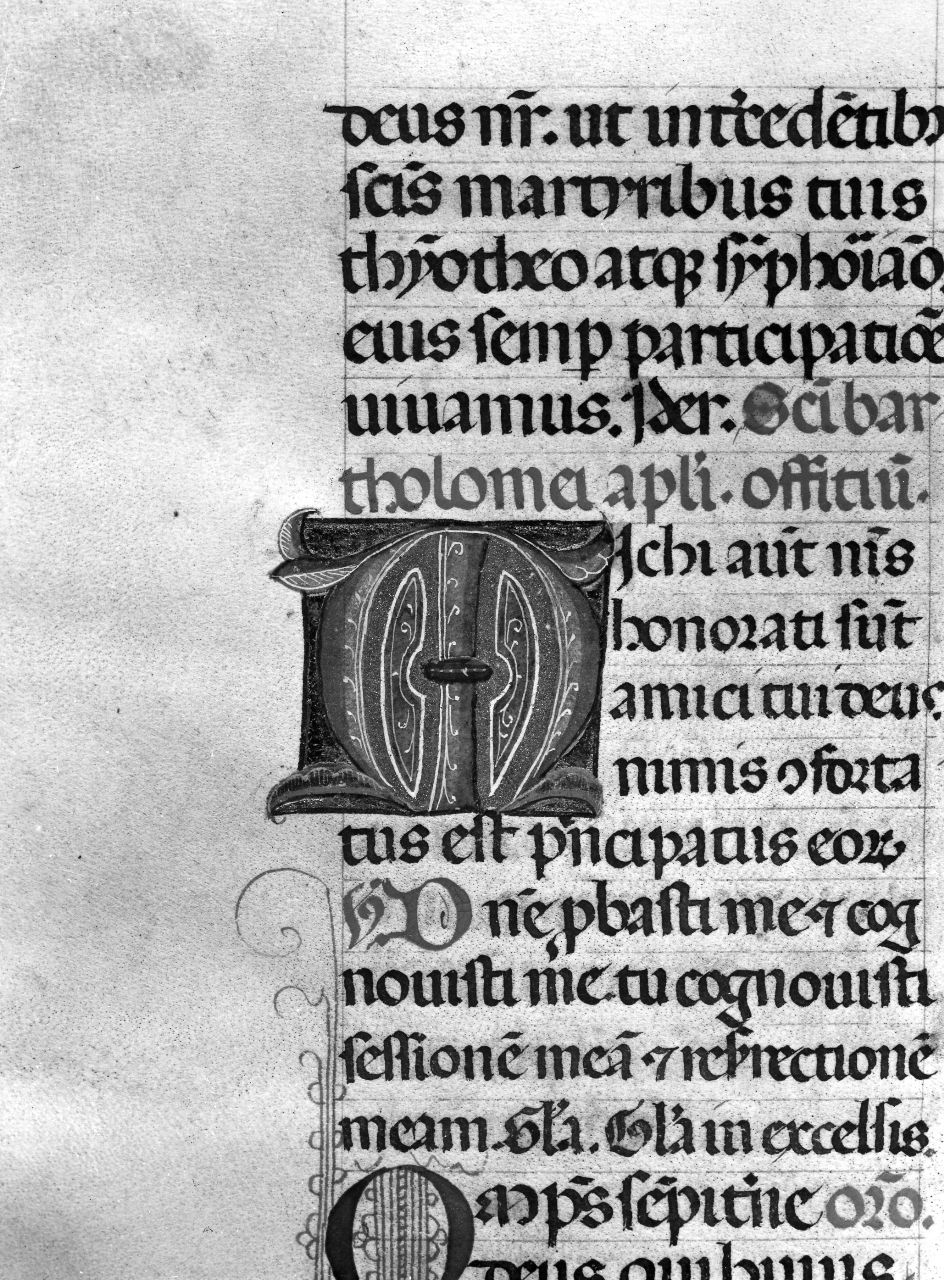 deus nr̄. ut int̾cedētibꝫ
sc̄is martyribus tuis
thȳotheo atqꝫ sȳphōiāo
eius semp̲ participatiōe
uiuamus. Ꝑ der. Sc̄i bar
tholomei apl̄i. offitiū.
Michi aūt nīs
honorati sūt
amici tui deus.
nimis ꝯforta
tus est pⁱncipatus eoꝝ
Dn̄e ꝓbasti me ⁊ cog
nouisti me tu cognouisti
sessionē meā ⁊ resr̄rectionē
meam. Gl̄a. Gl̄a in excelsis.
Omp̄s sēpit̾ne oro̅.
deus qui huius